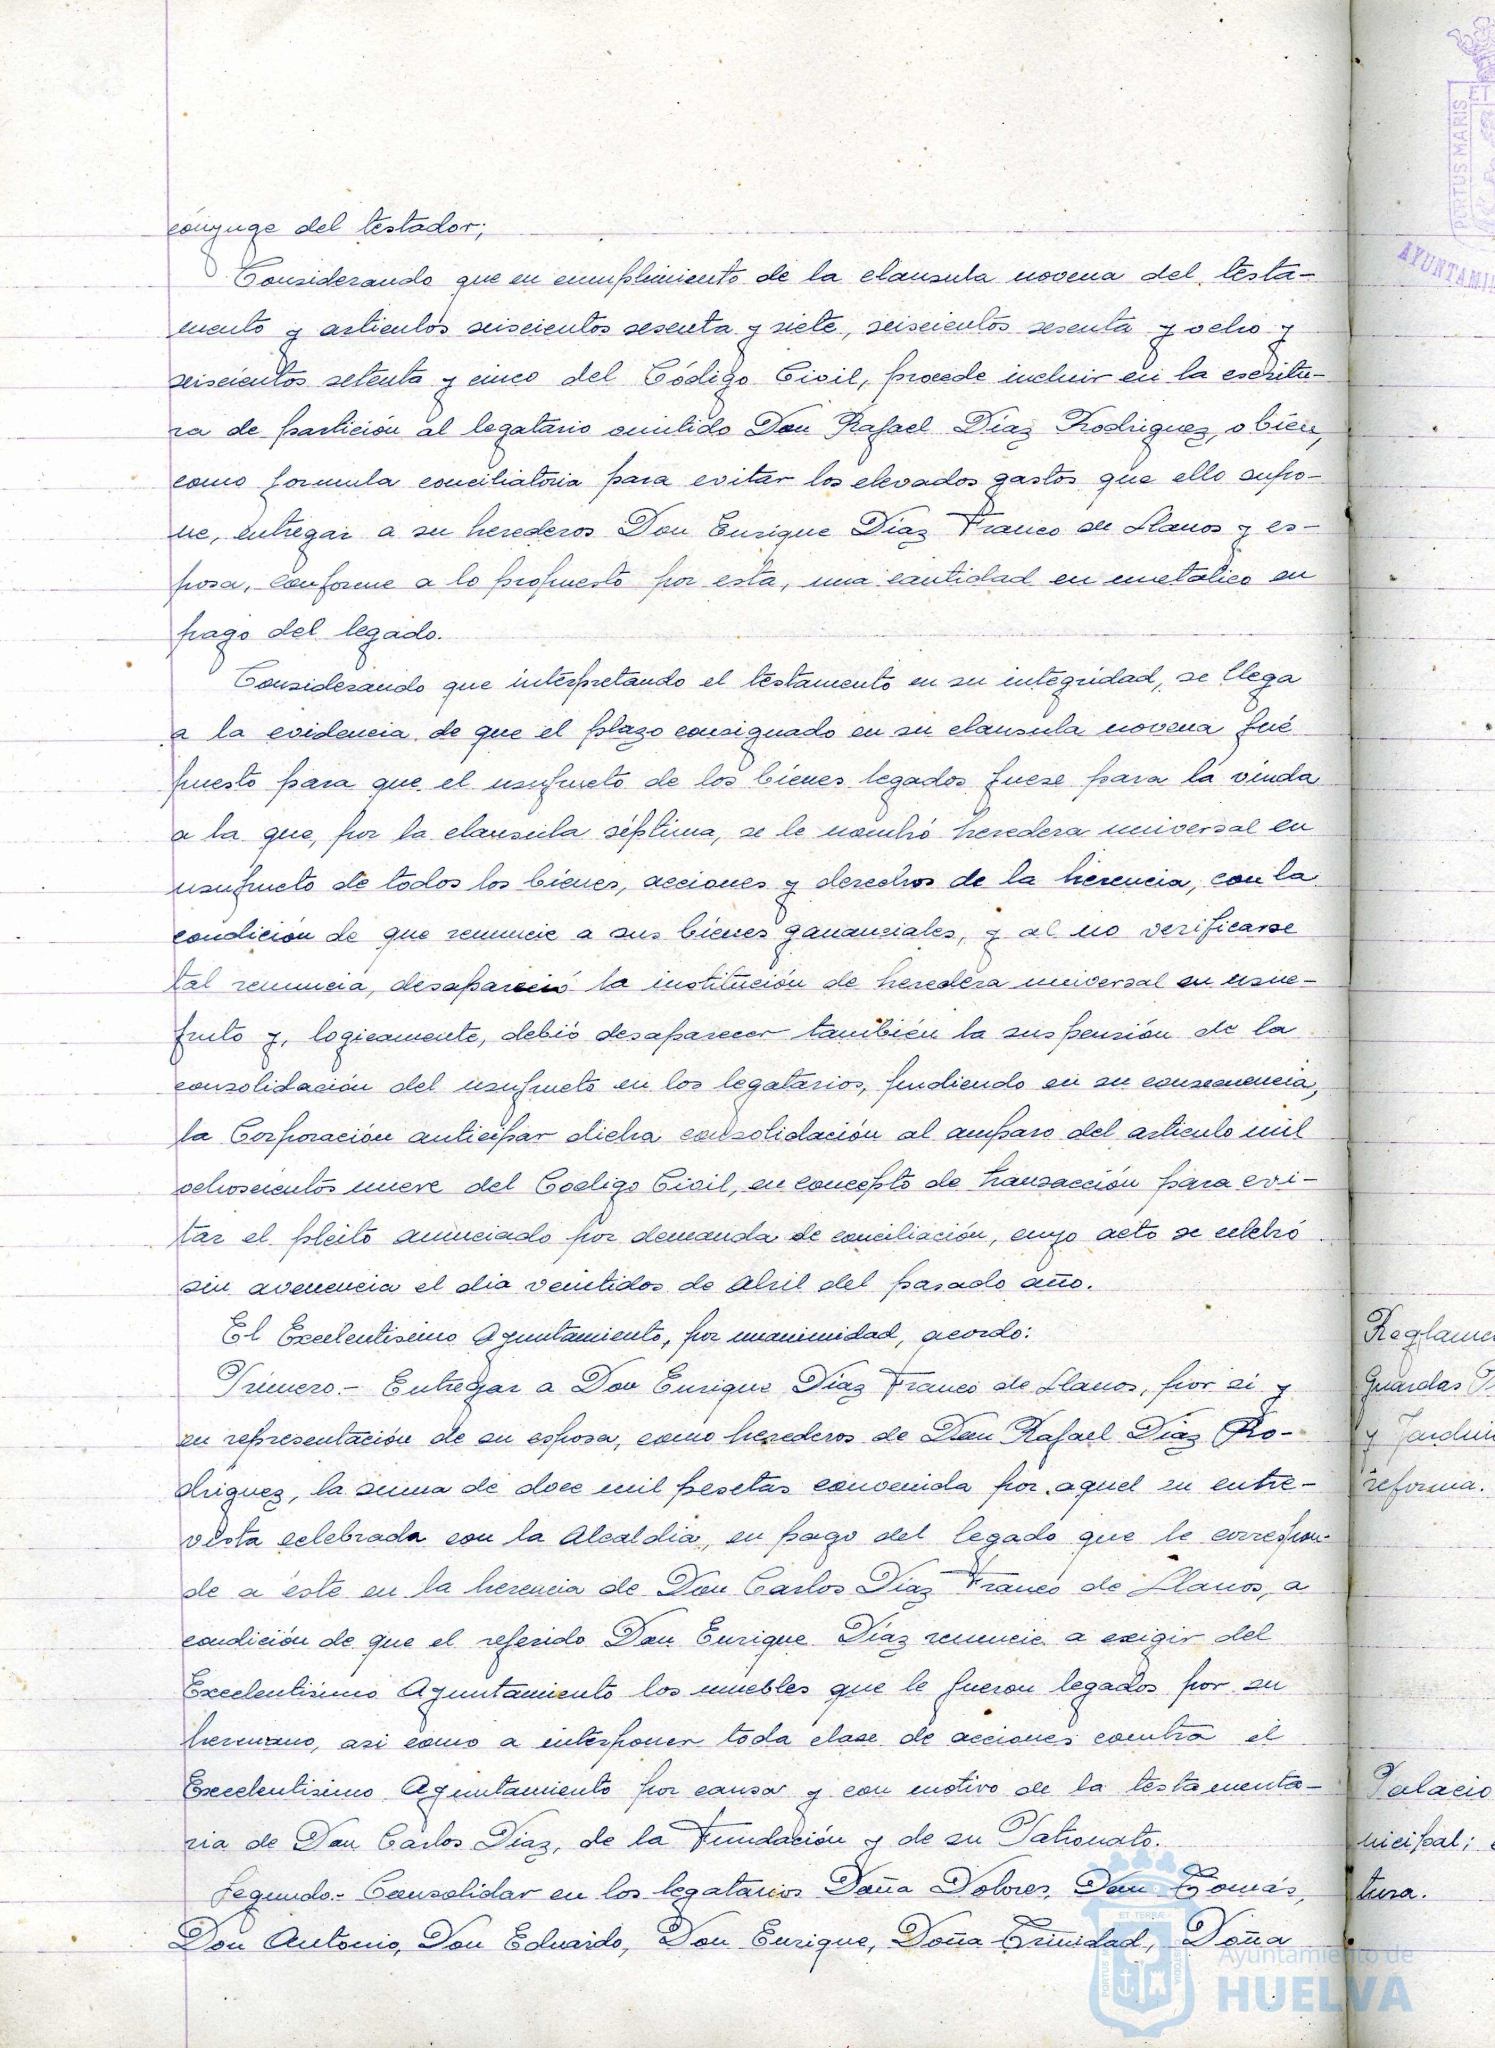 cónyuge del testador;
Considerando que en cumplimiento de la clausula novena del testa-
mento y articulos seiscientos sesenta y siete, seiscientos sesenta y ocho y
seiscientos setenta y cinco del Código Civil, procede incluir en la escritu-
ra de partición al legatario omitido Don Rafael Díaz Rodriguez, o bien,
como formula conciliatoria para evitar los elevados gastos que ello supo-
ne, entregar a su herederos Don Enrique Díaz Franco de Llanos y es-
posa, conforme a lo propuesto por esta, una cantidad en metalico en
pago del legado.
Considerando que interpretando el testamento en su integridad, se llega
a la evidencia de que el plazo consignado en su clausula novena fué
puesto para que el usufructo de los bienes legados fuese para la viuda
a la que, por la clausula séptima, se le nombró heredera universal en
usufructo de todos los bienes, acciones y derechos de la herencia, con la
condición de que renuncie a sus bienes gananciales, y al no verificarse
tal renuncia, desapareció la institución de heredera universal en usu-
fruto y, logicamente, debió desaparecer también la suspensión de la
consolidación del usufructo en los legatarios, pudiendo en su consecuencia,
la Corporación anticipar dicha consolidación al amparo del articulo mil
ochoscientos nueve del Codigo Civil, en concepto de transacción para evi-
tar el pleito anunciado por demanda de conciliación, cuyo acto se celebró
sin avenencia el dia veintidos de Abril del pasado año.
El Excelentisimo Ayuntamiento, por unanimidad, acordó:
Primero.- Entregar a Don Enrique Díaz Franco de Llanos, por si y
en representación de su esposa, como herederos de Don Rafael Díaz Ro-
driguez, la suma de doce mil pesetas convenida por aquel en entre-
vista celebrada con la Alcaldia, en pago del legado que le correspon-
de a éste en la herencia de Don Carlos Díaz Franco de Llanos, a
condición de que el referido Don Enrique Díaz renuncie a exigir del
Excelentisimo Ayuntamiento los muebles que le fueron legados por su
hermano, asi como a interponer toda clase de acciones contra el
Excelentisimo Ayuntamiento por causa y con motivo de la testamenta-
ria de Don Carlos Diaz, de la Fundación y de su Patronato.
Segundo.- Consolidar en los legatarios Doña Dolores, Don Tomás,
Don Antonio, Don Eduardo, Don Enrique, Doña Trinidad, Doña
PORTUS MARIS
ET
AYUNTAMI
Reglame
Guardas
y Jardin
reforma.
Palacio
nicipal;
tura.
Ayuntamiento de
HUELVA